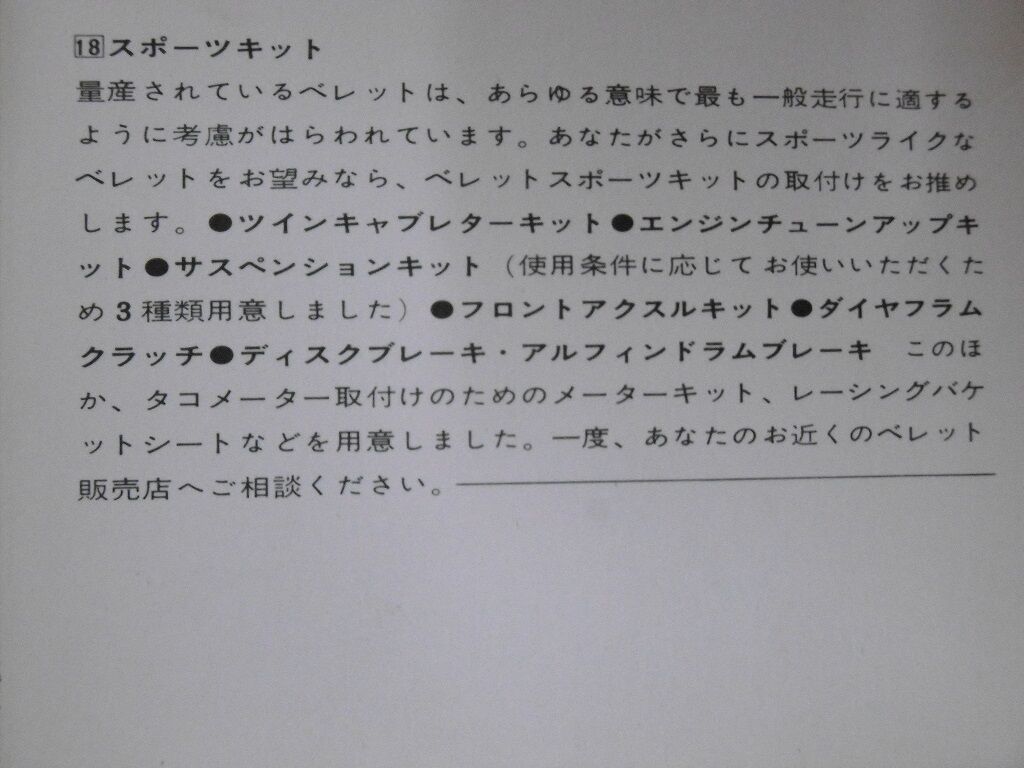 18スポーツキット
量産されているベレットは、あらゆる意味で最も一般走行に適する
ように考慮がはらわれています。あなたがさらにスポーツライクな
ベレットをお望みなら、ベレットスポーツキットの取付けをお推め
します。●ツインキャブレターキット●エンジンチューンアップキ
ット●サスペンションキット（使用条件に応じてお使いいただくた
め3種類用意しました）●フロントアクスルキット●ダイヤフラム
クラッチ●ディスクブレーキ・アルフィンドラムブレーキ　このほ
か、タコメーター取付けのためのメーターキット、レーシングバケ
ットシートなどを用意しました。一度、あなたのお近くのベレット
販売店へご相談ください。